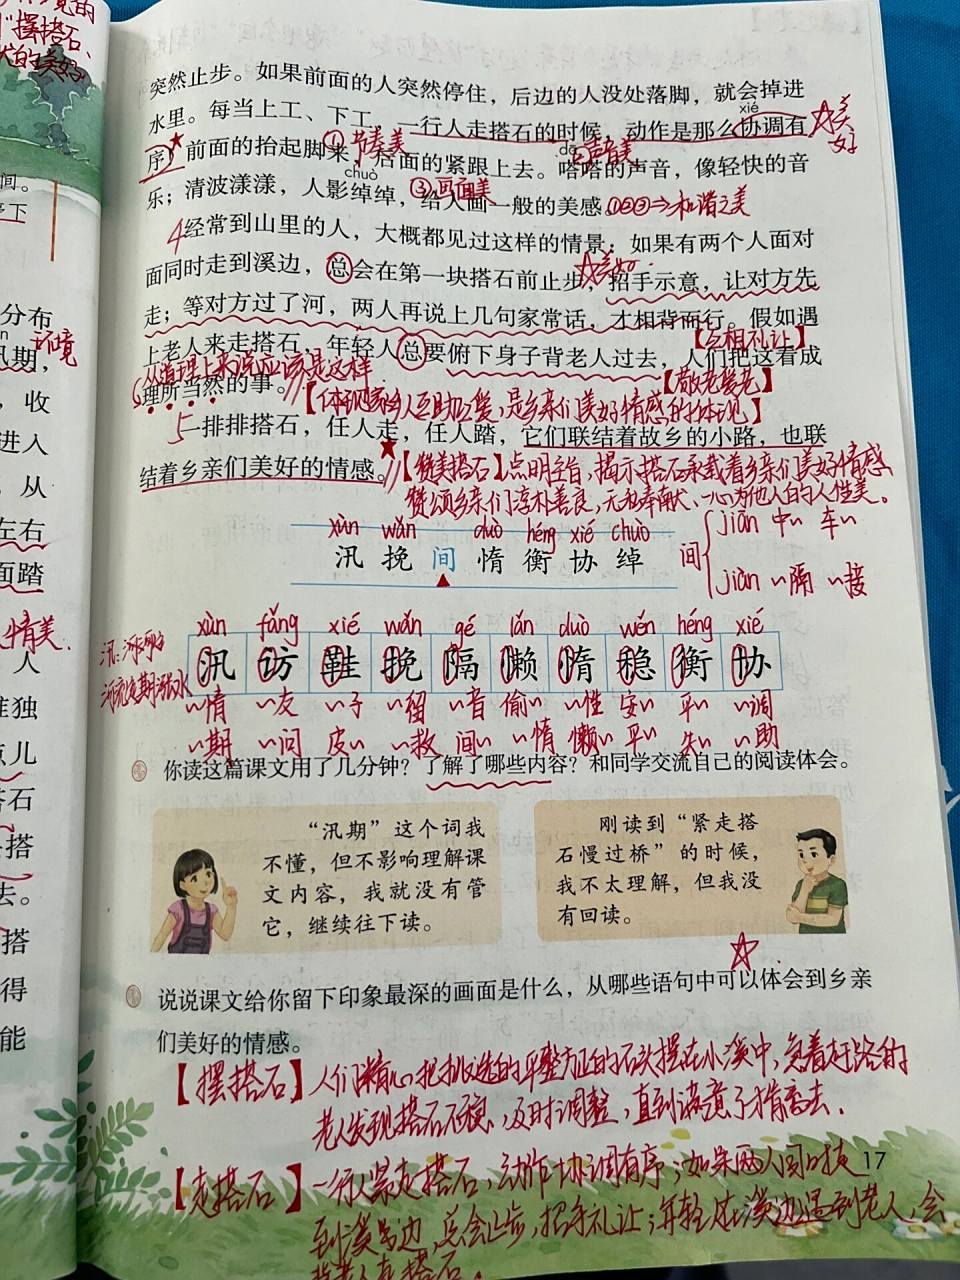 摆搭石、
的美好
间。
下
分布
汛期,
环境
，收
进入
，从
左右
面踏
情美.
人
唯独
点儿
搭石
搭
去。
搭
得
能
突然止步。如果前面的人突然停住，后边的人没处落脚，就会掉进
xié
水里。每当上工、下工，一行人走搭石的时候，动作是那么协调有
美好
①节奏美
②声音美
序！前面的抬起脚来，后面的紧跟上去。嗒嗒的声音，像轻快的音
chuò
③画面美
乐；清波漾漾，人影绰绰，给人画一般的美感。
①②③⇒和谐之美
4经常到山里的人，大概都见过这样的情景：如果有两个人面对
面同时走到溪边，总会在第一块搭石前止步，招手示意，让对方先
走；等对方过了河，两人再说上几句家常话，才相背而行。假如遇
【互相礼让】
上老人来走搭石，年轻人总要俯下身子背老人过去，人们把这看成
从道理上来说应该是这样
【敬老爱老】
理所当然的事。
【体现家乡人互助互爱,是乡亲们美好情感的体现】
5一排排搭石，任人走，任人踏，它们联结着故乡的小路，也联
结着乡亲们美好的情感。
【赞美搭石】点明主旨,揭示搭石承载着乡亲们美好情感,
赞颂乡亲们淳朴善良,无私奉献、一心为他人的人性美。
xùn wǎn duò héng xié chuò
汛 挽 间 惰 衡 协 绰
间 jiān 中~ 车~
jiàn ~隔 ~接
xùn fǎng xié wǎn gé lǎn duò wěn héng xié
汛 访 鞋 挽 隔 懒 惰 稳 衡 协
~情 ~友 ~子 ~留 ~音 偷~ ~性 安~ 平~ ~调
~期 ~问 皮~ ~救 间~ ~惰 懒~ 平~ 失~ ~助
你读这篇课文用了几分钟？了解了哪些内容？和同学交流自己的阅读体会。
“汛期”这个词我
不懂，但不影响理解课
文内容，我就没有管
它，继续往下读。
刚读到“紧走搭
石慢过桥”的时候，
我不太理解，但我没
有回读。
说说课文给你留下印象最深的画面是什么，从哪些语句中可以体会到乡亲
们美好的情感。
【摆搭石】人们精心把挑选的平整方正的石头摆在小溪中,急着赶路的
老人发现搭石不稳,及时调整,直到满意了才肯离去.
【走搭石】一行人紧走搭石,动作协调有序;如果两人同时走
到溪边,总会止步,招手礼让;年轻人在溪边遇到老人,会
背老人走搭石.
17